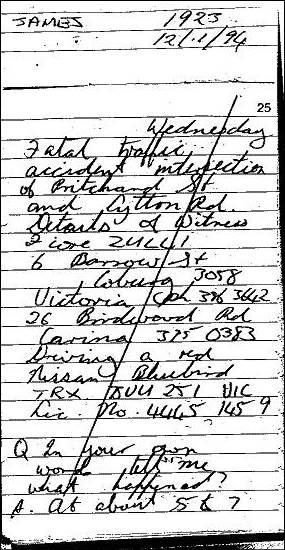 JAMES 1923
12/1/94
25
Wednesday
Fatal traffic
accident intersection
of Pritchard St
and Lytton Rd.
Details of Witness
6 Barrow St
Coburg 3058
Victoria (ph 386 3642
26 Birdwood Rd
Carina 395 0383
Driving a red
Nissan Bluebird
TRX. 251 HIC
Lic. No. 4445 145 9
Q In your own
words tell me
what happened?
A. At about 5 & 7